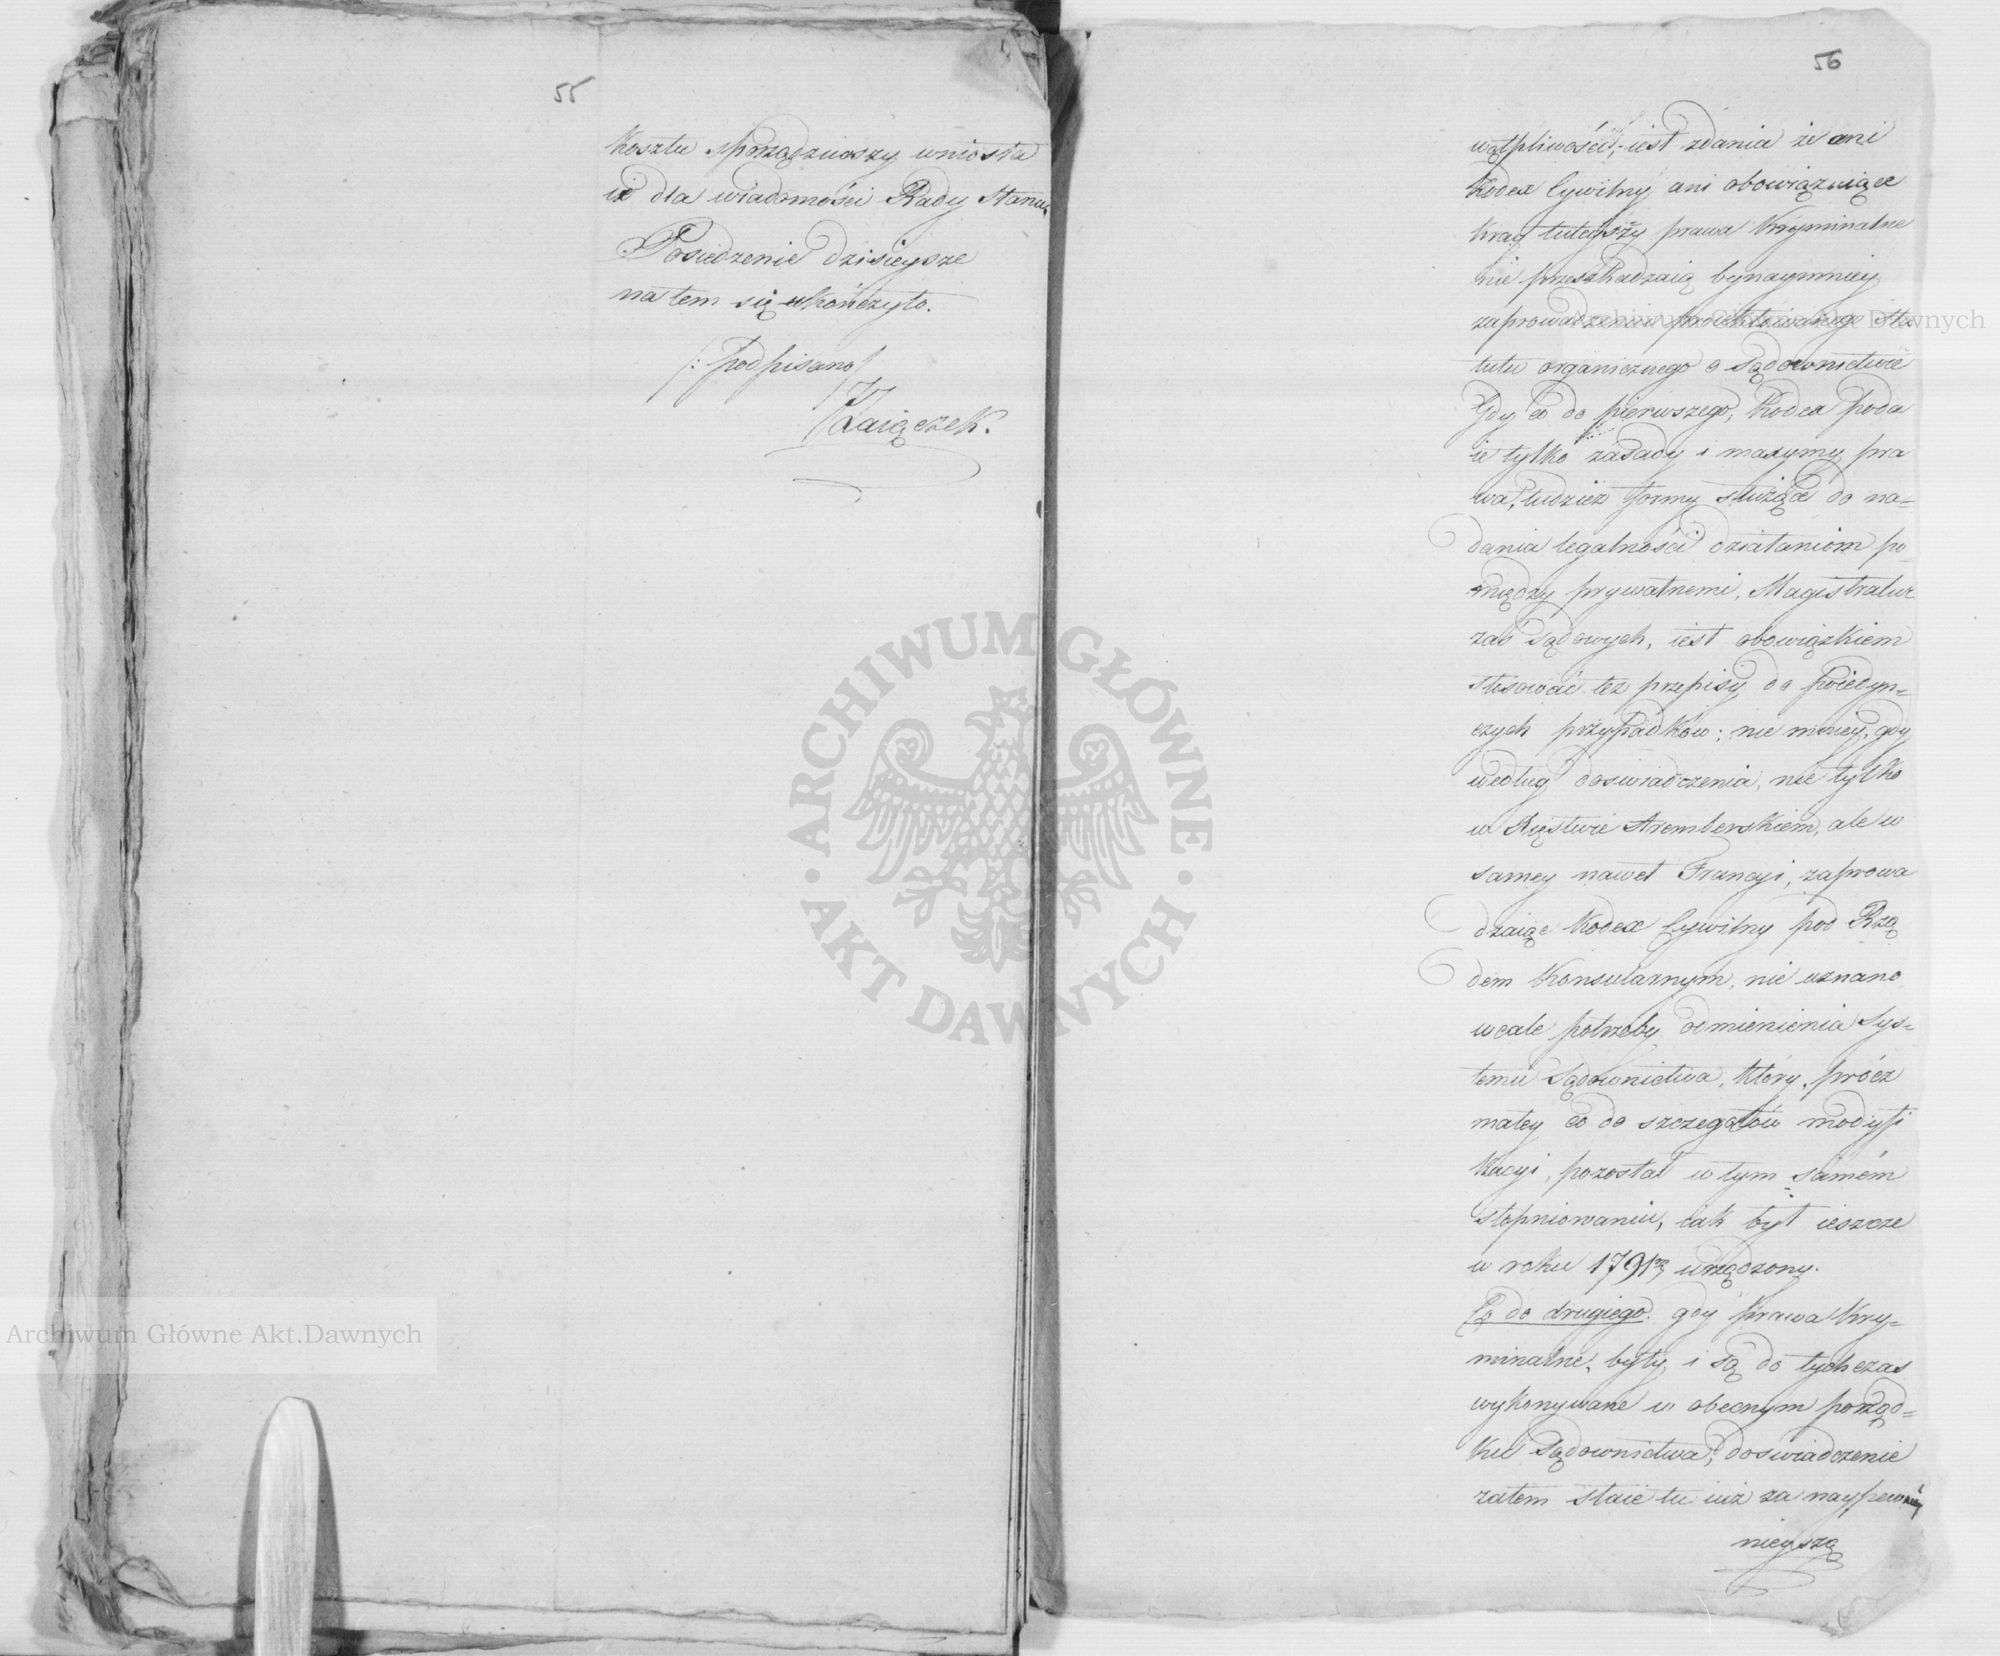 55
Kosztu sporządziwszy wniosła
ie dla wiadomości Rady Stanu.
Posiedzenie dzisieysze
na tem się ukończyło.
/: podpisano /
Zaiączek.
56
wątpliwości, iest zdania że ani
Kodex Cywilny ani obowiązuiące
kray tuteyszy prawa Kryminalne
nie przeszkadzaią bynaymniey
zaprowadzeniu proiektowanego Sta
tutu organicznego o Sądownictwie
Gdy co do pierwszego, Kodex poda
ie tylko zasady i maxymy pra
wa, tudzież formy służące do na=
dania legalności działaniom po
między prywatnemi, Magistratur
zaś Sądowych, iest obowiązkiem
stosować też przepisy do poiedyn=
czych przypadków; nie mniey, gdy
według doświadczenia, nie tylko
w Xięstwie Aremberskiem, ale w
samey nawet Francyi, zaprowa
dzaiąc Kodex Cywilny pod Rzą
dem Konsularnym, nie uznano
wcale potrzeby odmienienia Sys=
temu Sądownictwa, który, prócz
małey co do szczegółów modyfi
kacyi, pozostał w tym samém
stopniowaniu, iak był ieszcze
w roku 1791m urządzony.
Co do drugiego. gdy prawa kry=
minalne, były i są do tychczas
wykonywane w obecnym porząd=
ku Sądownictwa, doświadczenie
zatem staie tu iuż za naypew
nieyszą
Archiwum Główne Akt Dawnych
ARCHIWUM GŁÓWNE · AKT DAWNYCH ·
Archiwum Główne Akt.Dawnych